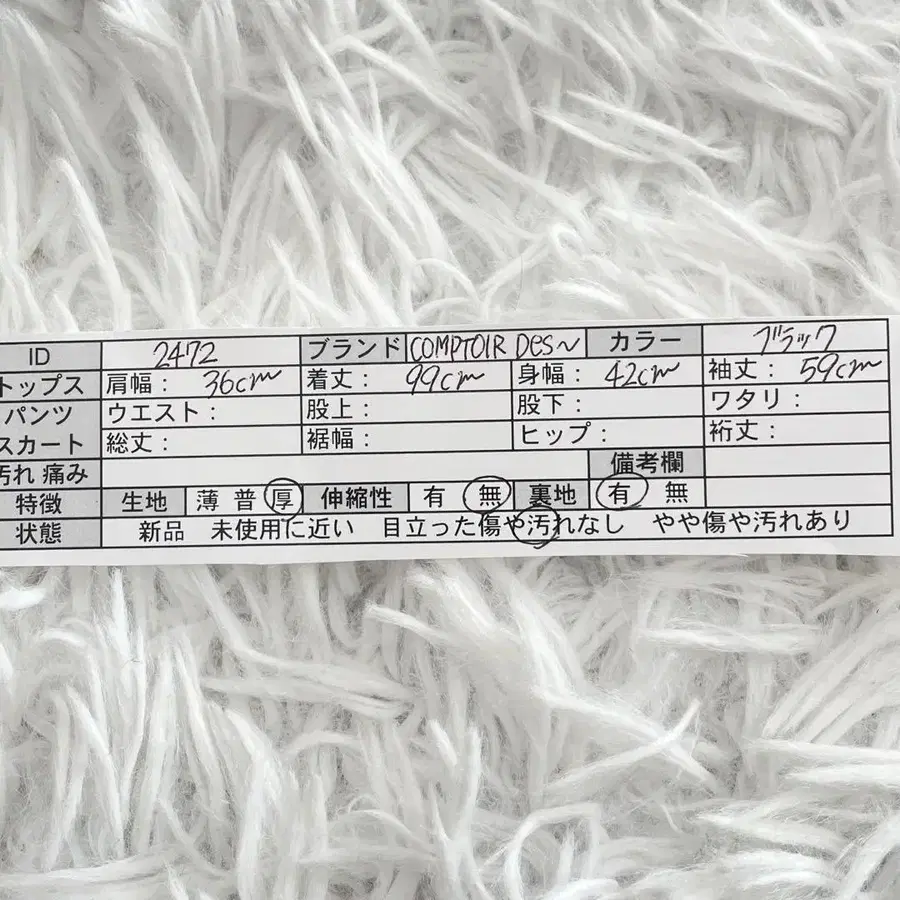 ID 2472 ブランド COMPTOIR Des〜 カラー ブラック
トップス 肩幅： 36cm 着丈： 99cm 身幅： 42cm 袖丈： 59cm
パンツ ウエスト： 股上： 股下： ワタリ：
スカート 総丈： 裾幅： ヒップ： 裄丈：
汚れ 痛み 備考欄
特徴 生地 薄 普 厚 伸縮性 有 無 裏地 有 無
状態 新品 未使用に近い 目立った傷や汚れなし やや傷や汚れあり